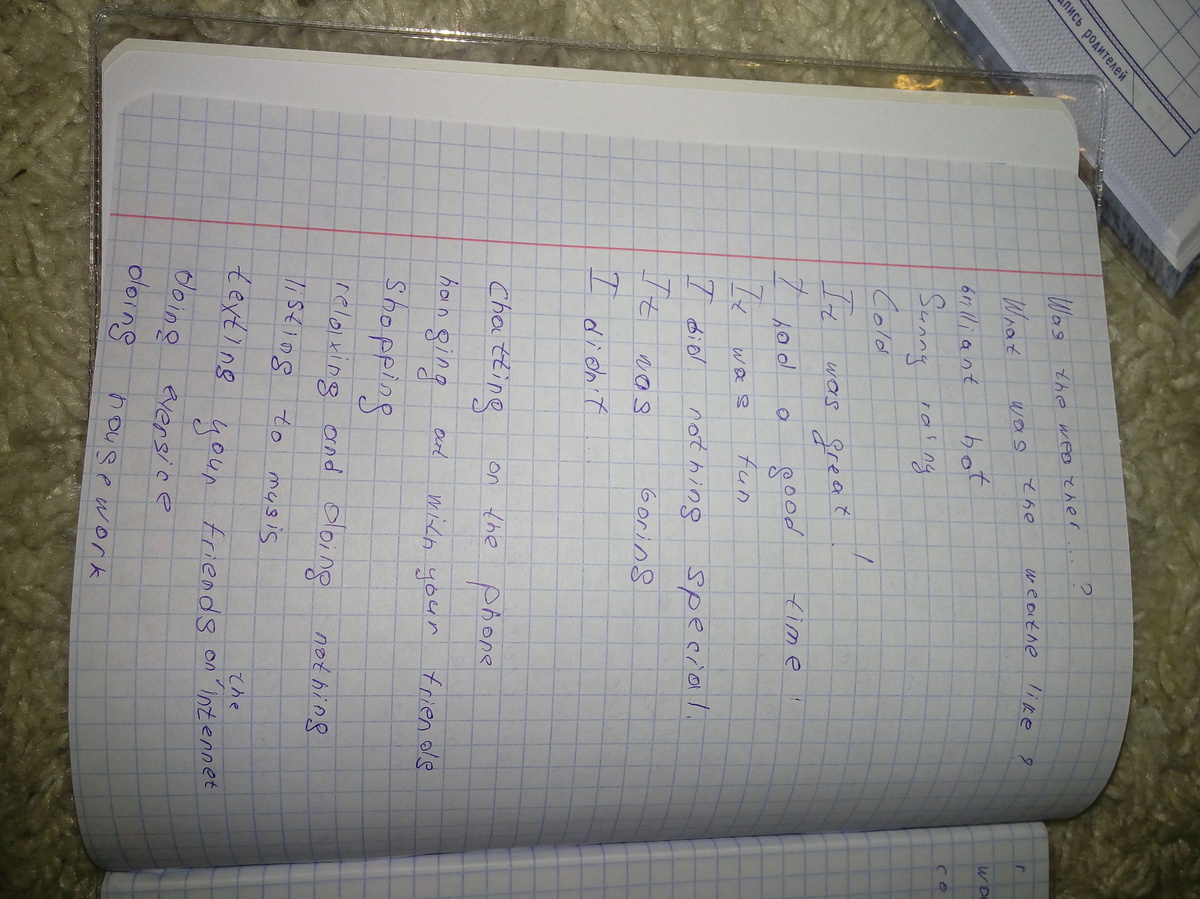 Was the weather...?
What was the weathe like?
brilliant hot
Sunny rainy
Cold
It was great!
I had a good time!
It was fun
I did nothing special.
It was boring
I didnit...
Chatting on the phone
hanging out with your friends
Shopping
relaxing and doing nothing
listing to musis
texting your friends on the intennet
doing exersice
doing housework
дпись родителей
r
wa
co